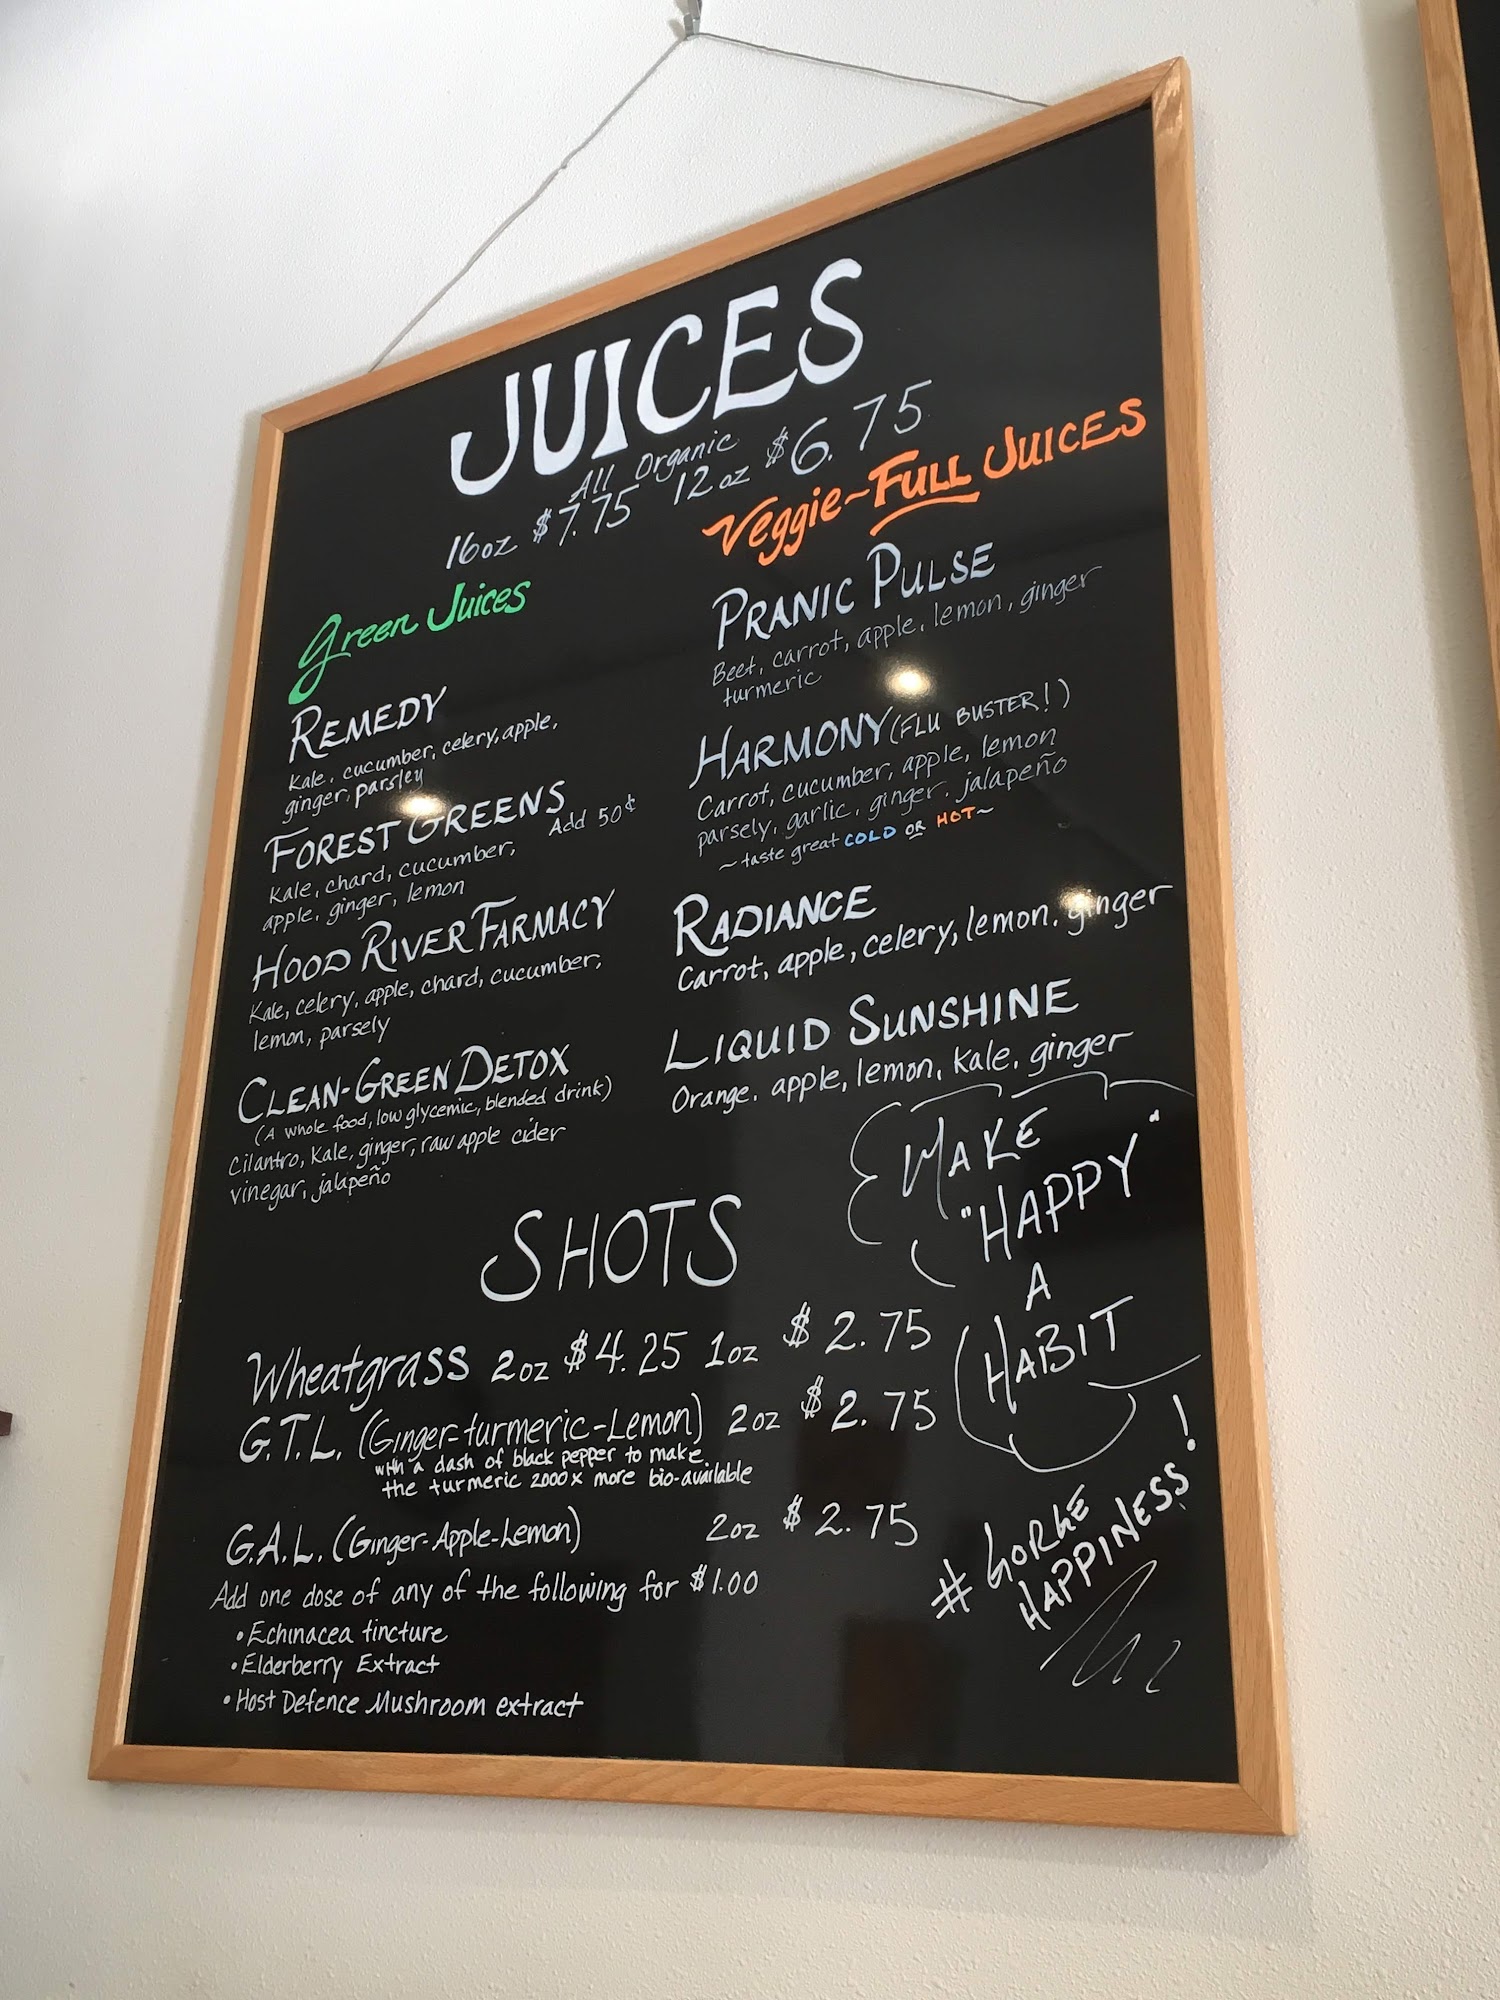 JUICES
All Organic
16oz $7.75 12oz $6.75
Green Juices
REMEDY
Kale, cucumber, celery, apple,
ginger, parsley
FOREST GREENS
Add 50¢
Kale, chard, cucumber,
apple, ginger, lemon
HOOD RIVER FARMACY
Kale, celery, apple, chard, cucumber,
lemon, parsely
CLEAN-GREEN DETOX
(A whole food, low glycemic, blended drink)
Cilantro, Kale, ginger, raw apple cider
vinegar, jalapeño
Veggie~FULL JUICES
PRANIC PULSE
Beet, carrot, apple, lemon, ginger
turmeric
HARMONY (FLU BUSTER!)
Carrot, cucumber, apple, lemon
parsely, garlic, ginger, jalapeño
~taste great COLD OR HOT~
RADIANCE
Carrot, apple, celery, lemon, ginger
LIQUID SUNSHINE
Orange, apple, lemon, Kale, ginger
SHOTS
Wheatgrass 2oz $4.25 1oz $2.75
G.T.L. (Ginger-turmeric-Lemon) 2oz $2.75
with a dash of black pepper to make
the turmeric 2000x more bio-available
G.A.L. (Ginger-Apple-Lemon) 2oz $2.75
Add one dose of any of the following for $1.00
• Echinacea tincture
• Elderberry Extract
• Host Defence Mushroom extract
MAKE
"HAPPY"
A
HABIT
#GORGE
HAPPINESS!